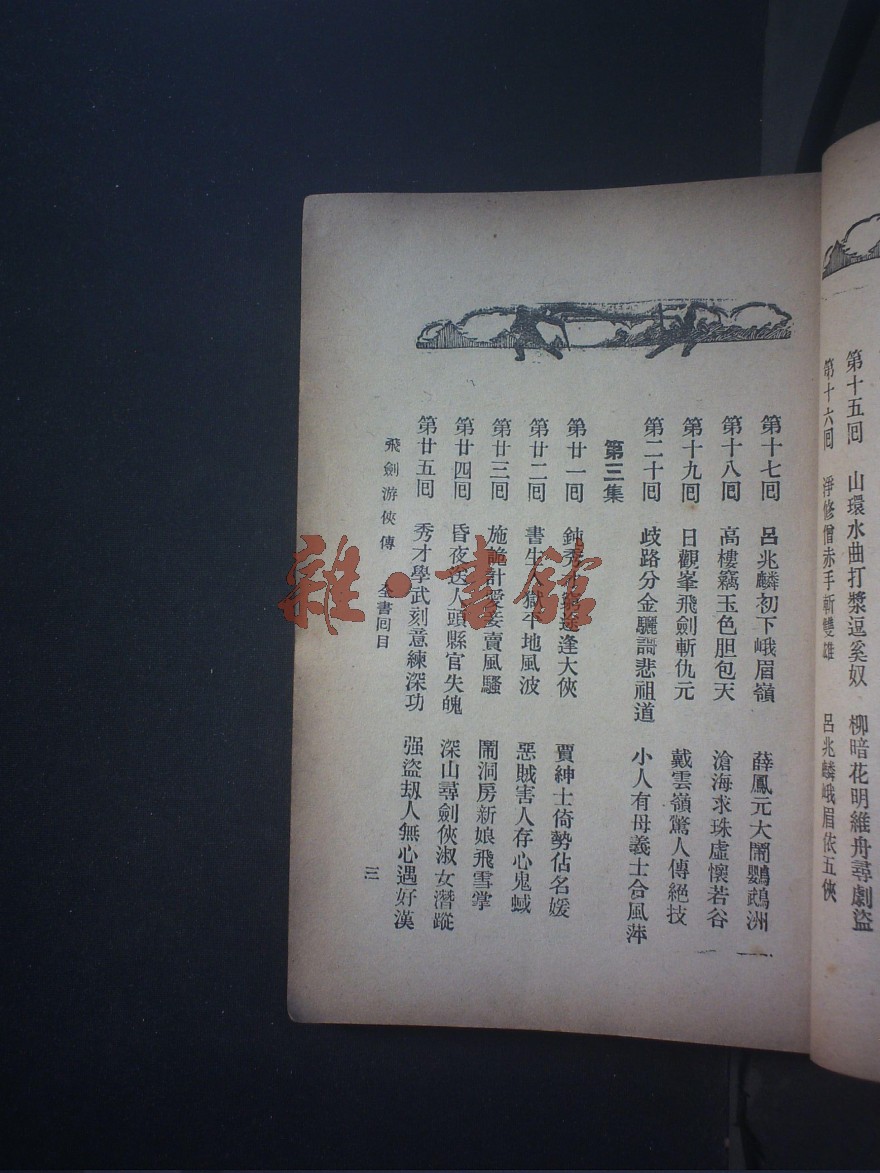 第十五回 山環水曲打槳逗奚奴 柳暗花明維舟尋劇盜
第十六回 淨修僧赤手斬雙雄 呂兆麟峨眉依五俠
第十七回 呂兆麟初下峨眉嶺 薛鳳元大鬧鸚鵡洲
第十八回 高樓竊玉色胆包天 滄海求珠虛懷若谷
第十九回 日觀峯飛劍斬仇元 戴雲嶺驚人傳絕技
第二十回 歧路分金驪謌悲祖道 小人有母義士合風萍
第三集
第廿一回 鈍秀才窮途逢大俠 賈紳士倚勢佔名媛
第廿二回 書生入獄平地風波 惡賊害人存心鬼蜮
第廿三回 施詭計愛妾賣風騷 鬧洞房新娘飛雪掌
第廿四回 昏夜送人頭縣官失魄 深山尋劍俠淑女潛蹤
第廿五回 秀才學武刻意練深功 强盜刼人無心遇好漢
飛劍游俠傳 全書回目 三
雜·書館